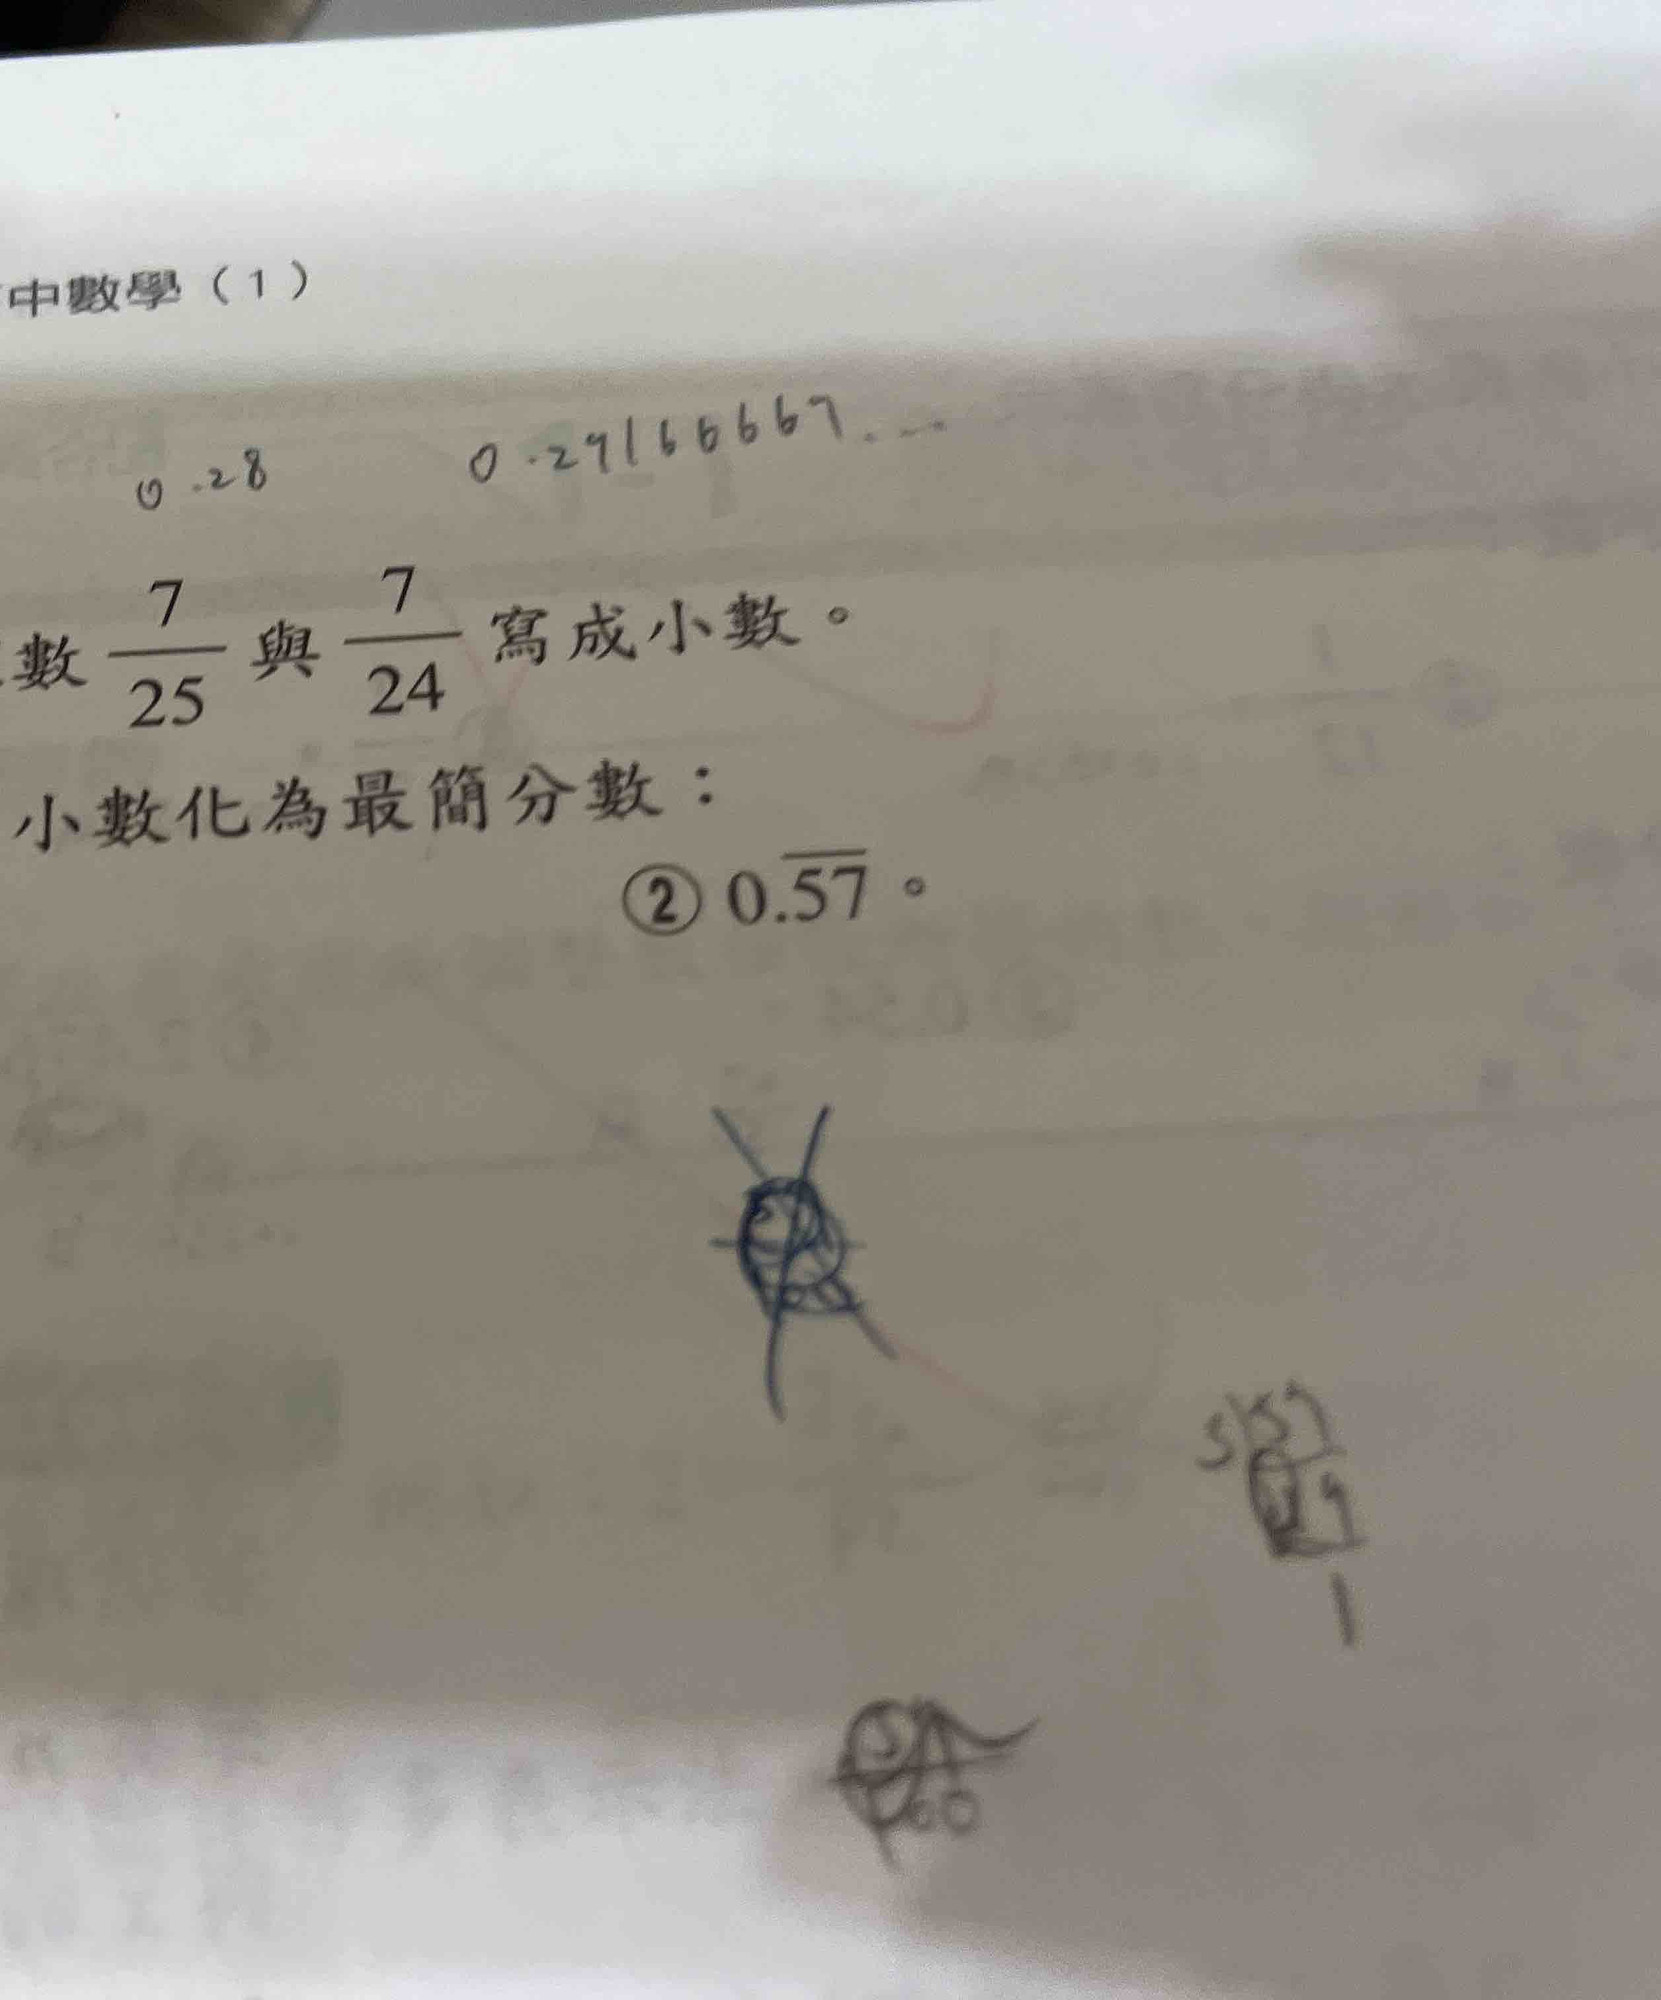 中數學（1）
0.28 0.29166667...
數 7/25 與 7/24 寫成小數。
小數化為最簡分數：
② 0.\overline{57}。